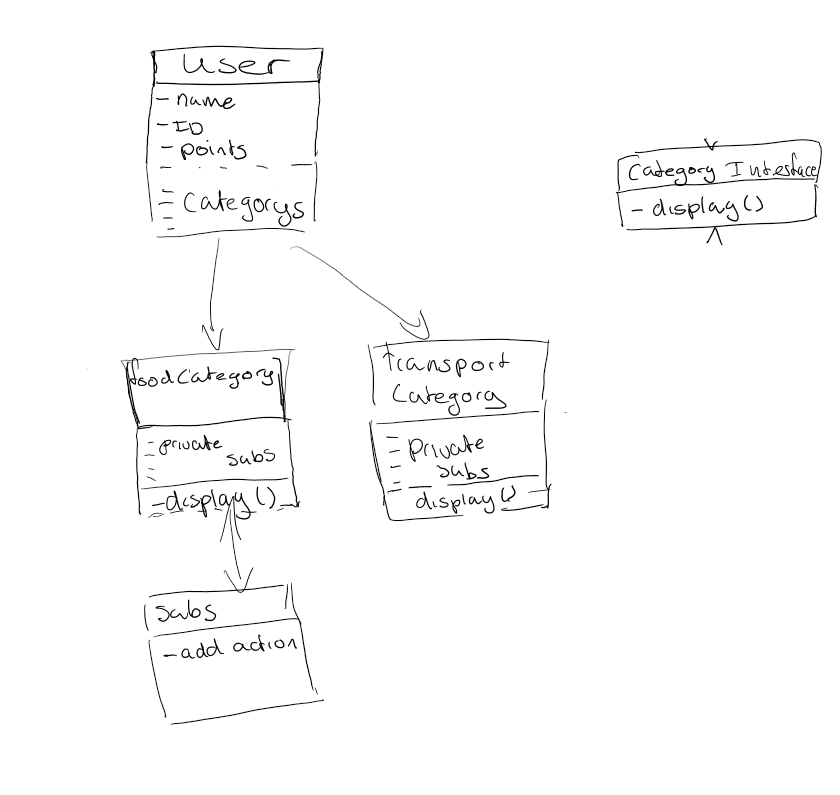 User
- name
- ID
- points
- Categorys
Category Interface
- display()
foodCategory
- private
subs
- display()
transport
Category
- private
subs
display()
subs
- add action